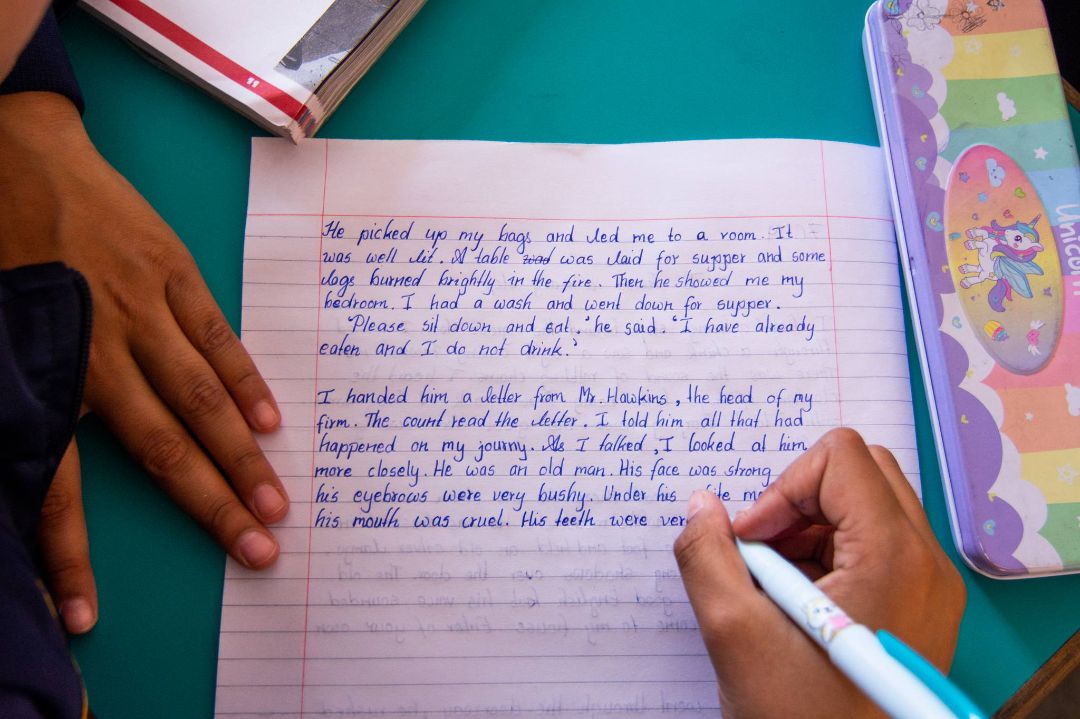 He picked up my bags and led me to a room. It
was well lit. A table was laid for supper and some
logs burned brightly in the fire. Then he showed me my
bedroom. I had a wash and went down for supper.
'Please sit down and eat,' he said. 'I have already
eaten and I do not drink.'
I handed him a letter from Mr. Hawkins, the head of my
firm. The count read the letter. I told him all that had
happened on my journy. As I talked, I looked at him
more closely. He was an old man. His face was strong
his eyebrows were very bushy. Under his
his mouth was cruel. His teeth were
Unicorn